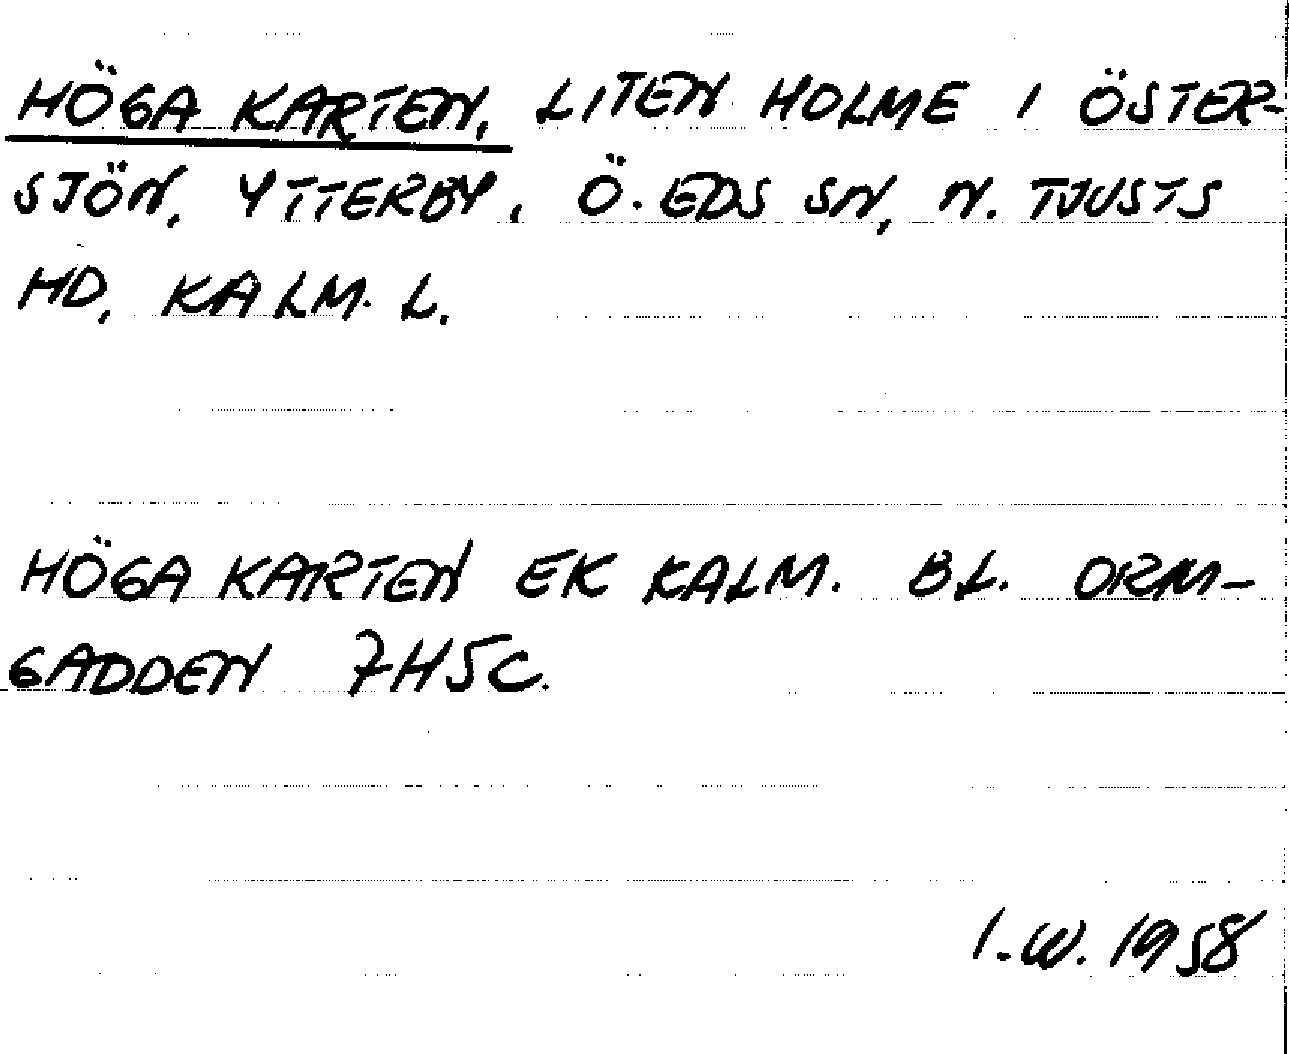 HÖGA KARTEN, LITEN HOLME I ÖSTER-
SJÖN, YTTERBY, Ö. EDS SN, N. TJUSTS
HD, KALM. L.
HÖGA KARTEN EK KALM. BL. ORM-
GADDEN 7H5C.
I.W. 1958